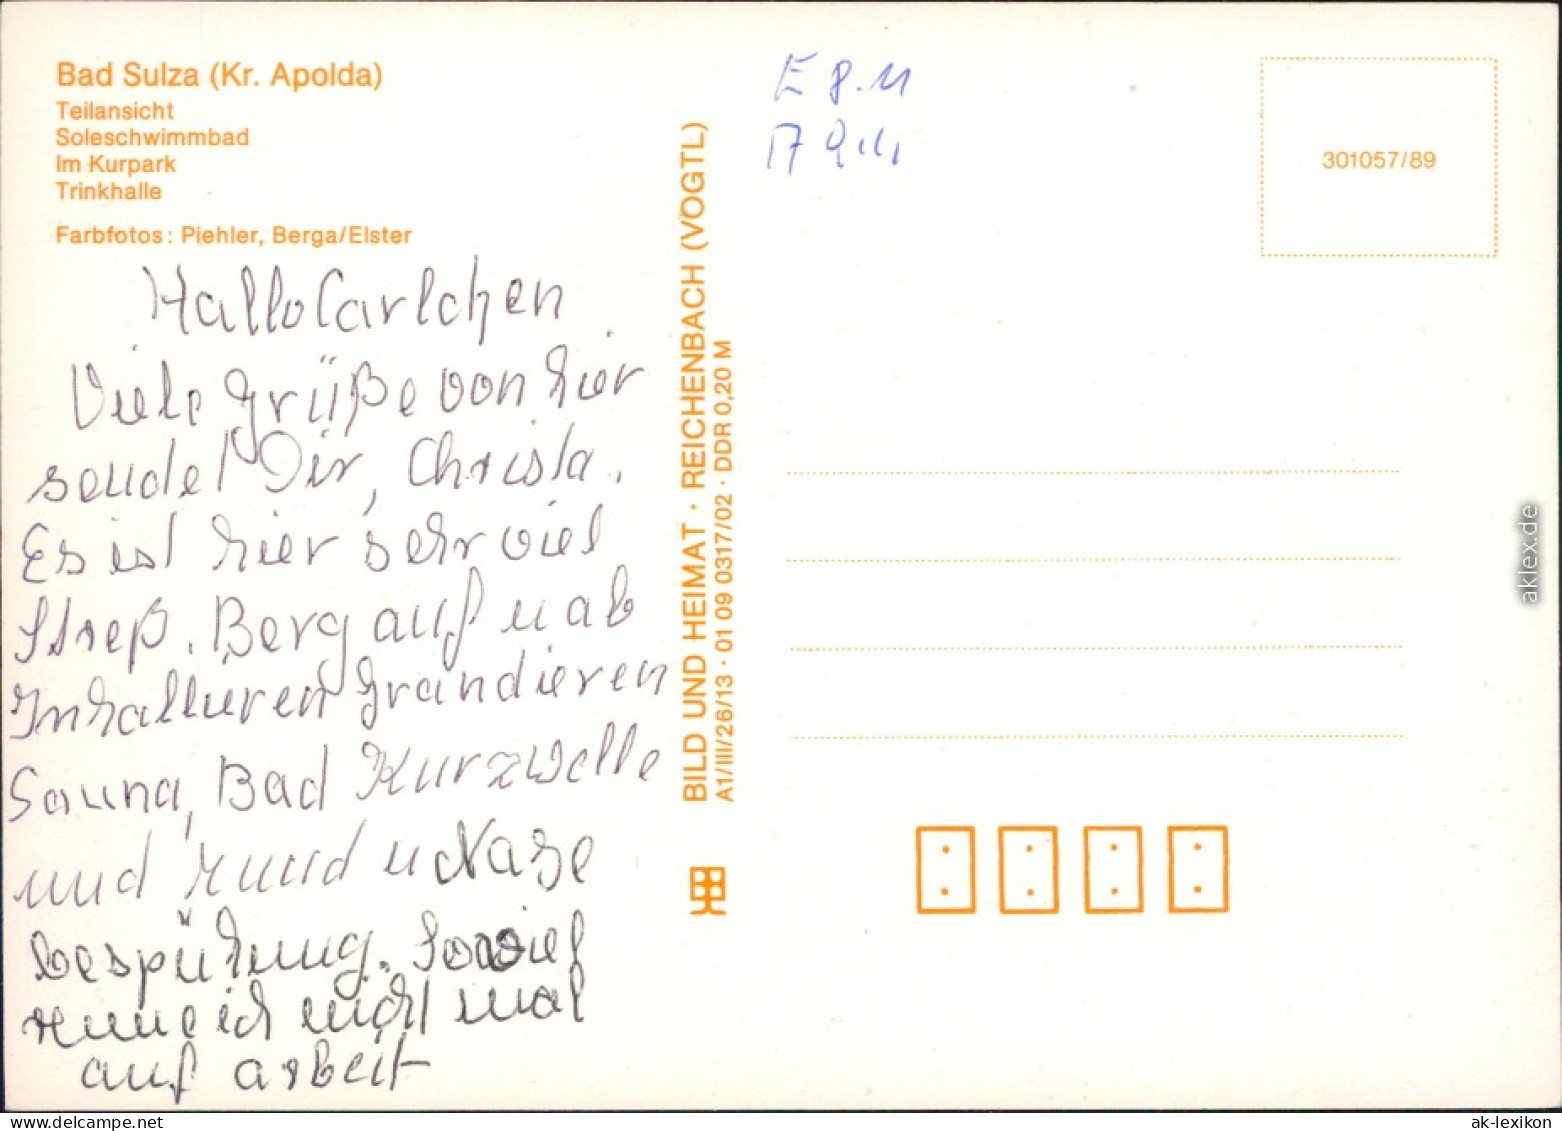 Bad Sulza (Kr. Apolda)
Teilansicht
Soleschwimmbad
Im Kurpark
Trinkhalle
Farbfotos: Piehler, Berga/Elster
Hallo Carlchen
Viele Grüße von hier
sendet Dir, Christa.
Es ist hier sehr viel
Streß. Berg auf u ab
Inhallieren Grandieren
Sauna, Bad Kurzwelle
und Mund u Nase
bespühung. Soviel
renne ich nicht mal
auf arbeit
BILD UND HEIMAT · REICHENBACH (VOGTL)
A1/III/26/13 · 01 09 0317/02 · DDR 0,20 M
E 8.11
301057/89
aklex.de
ak-lexikon